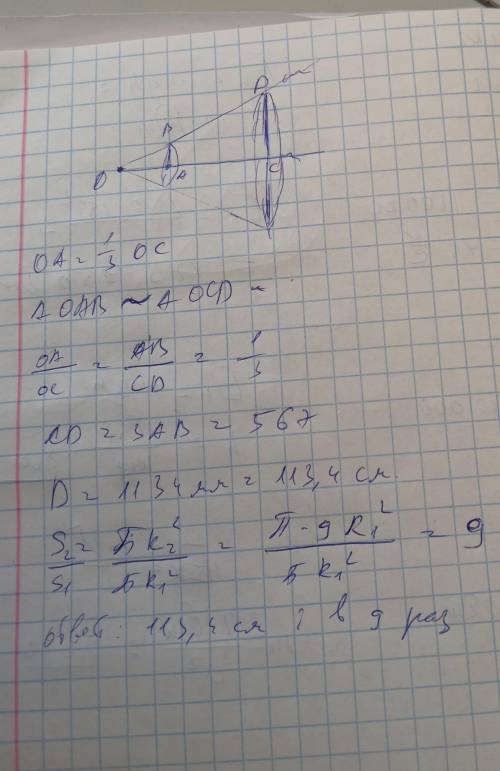 D
B
O
A
C
OA = 1/3 OC
Δ OAB ~ Δ OCD -
OA/OC = AB/CD = 1/3
CD = 3AB = 567
D = 1134 мм = 113,4 см.
S₂/S₁ = ПR₂²/ПR₁² = П · 9R₁²/ПR₁² = 9
Ответ: 113,4 см ; в 9 раз